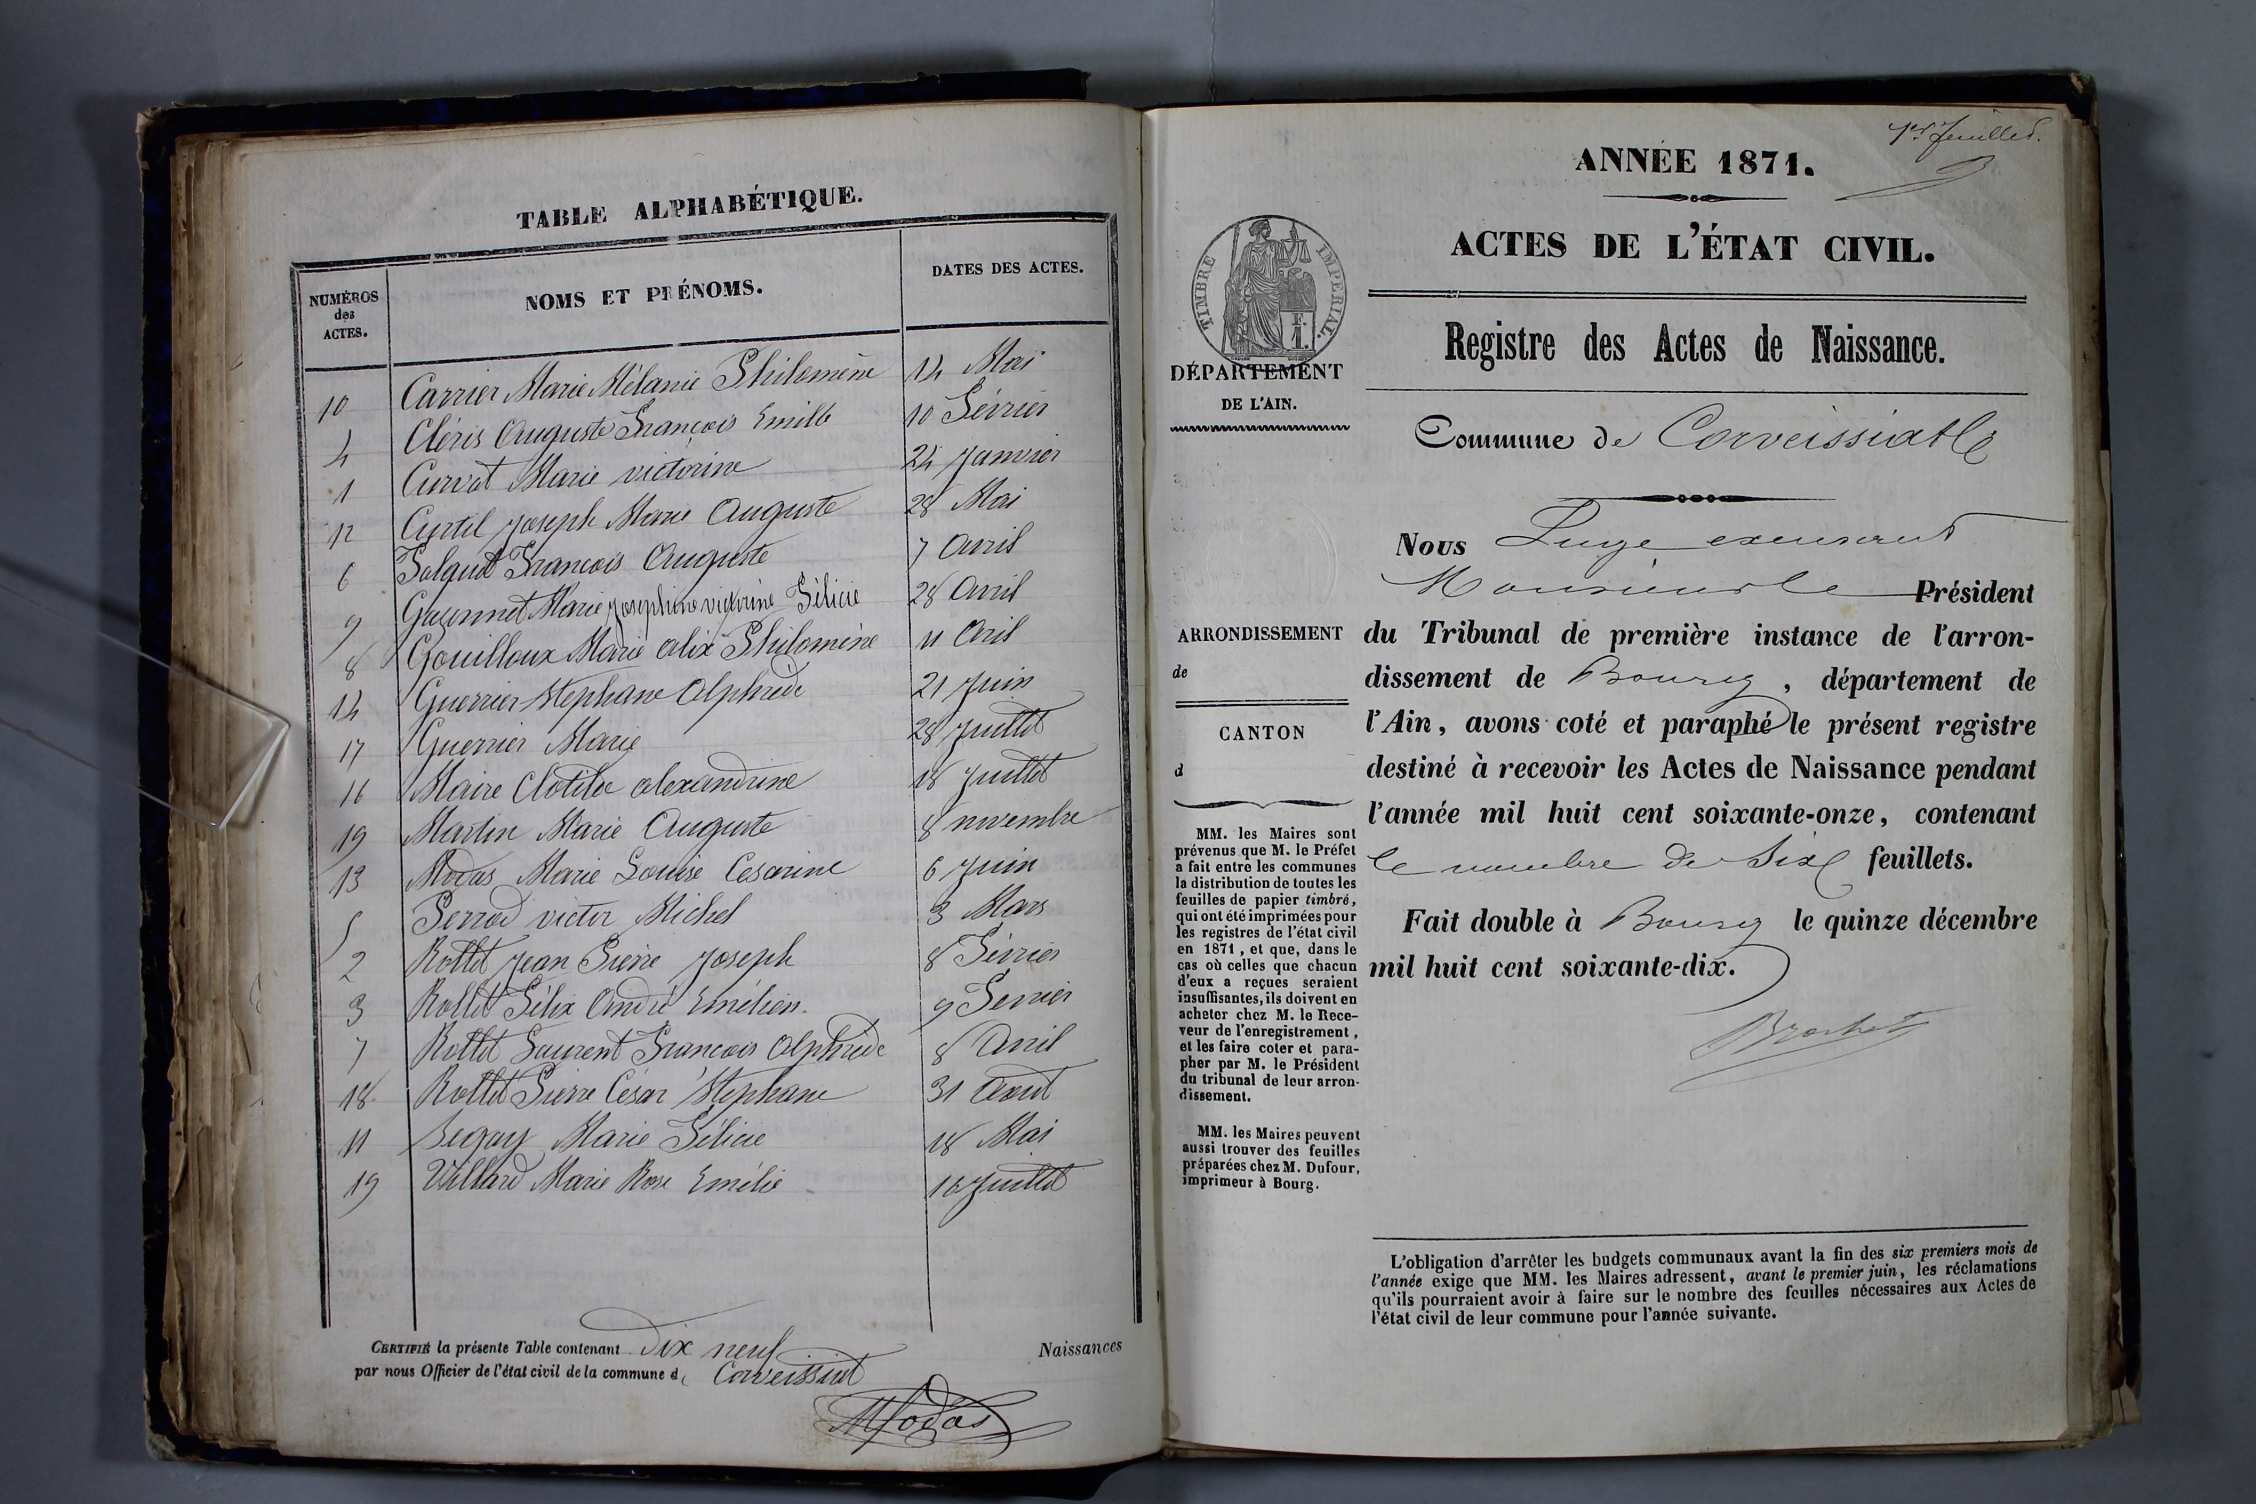 TABLE ALPHABÉTIQUE.
NUMÉROS des ACTES. NOMS ET PRÉNOMS. DATES DES ACTES.
10 Carrier Marie Mélanie Philomène 14 Mai
4 Cléris Auguste François Emille 10 Février
1 Curvat Marie victorine 24 Janvier
12 Curtil Joseph Marie Auguste 28 Mai
6 François Auguste 7 Avril
9 Marie Josephine victorine Félicie 28 Avril
8 Gouilloux Marie alix Philomène 11 Avril
14 Guerrier Stephane Alphrede 21 Juin
17 Guerrier Marie 28 Juillet
16 Maire Clotilde alexandrine 18 Juillet
19 Martin Marie Auguste 8 novembre
13 Modas Marie Louise Cesarine 6 Juin
5 Perrod victor Michel 3 Mars
2 Rollet Jean Pierre Joseph 8 Février
3 Rollet Félix André Emélien. 9 Fevrier
7 Rollet Laurent Francois Alphrede 8 Avril
18 Rollet Pierre César Stephane 31 Aout
11 Segay Marie Félicie 18 Mai
19 Villard Marie Rose Emélie 16 Juillet
CERTIFIÉ la présente Table contenant Dix neuf Naissances
par nous Officier de l'état civil de la commune d Corveissiat
Modas
1er feuillet.
ANNÉE 1871.
ACTES DE L'ÉTAT CIVIL.
TIMBRE IMPÉRIAL.
DÉPARTEMENT
DE L'AIN.
Registre des Actes de Naissance.
Commune de Corveissiat
Nous Juge
Monsieur le Président
du Tribunal de première instance de l'arron-
dissement de Bourg, département de
l'Ain, avons coté et paraphé le présent registre
destiné à recevoir les Actes de Naissance pendant
l'année mil huit cent soixante-onze, contenant
le nombre de Six feuillets.
Fait double à Bourg le quinze décembre
mil huit cent soixante-dix.
ARRONDISSEMENT
de
CANTON
d
MM. les Maires sont
prévenus que M. le Préfet
a fait entre les communes
la distribution de toutes les
feuilles de papier timbré,
qui ont été imprimées pour
les registres de l'état civil
en 1871, et que, dans le
cas où celles que chacun
d'eux a reçues seraient
insuffisantes, ils doivent en
acheter chez M. le Rece-
veur de l'enregistrement,
et les faire coter et para-
pher par M. le Président
du tribunal de leur arron-
dissement.
MM. les Maires peuvent
aussi trouver des feuilles
préparées chez M. Dufour,
imprimeur à Bourg.
L'obligation d'arrêter les budgets communaux avant la fin des six premiers mois de
l'année exige que MM. les Maires adressent, avant le premier juin, les réclamations
qu'ils pourraient avoir à faire sur le nombre des feuilles nécessaires aux Actes de
l'état civil de leur commune pour l'année suivante.